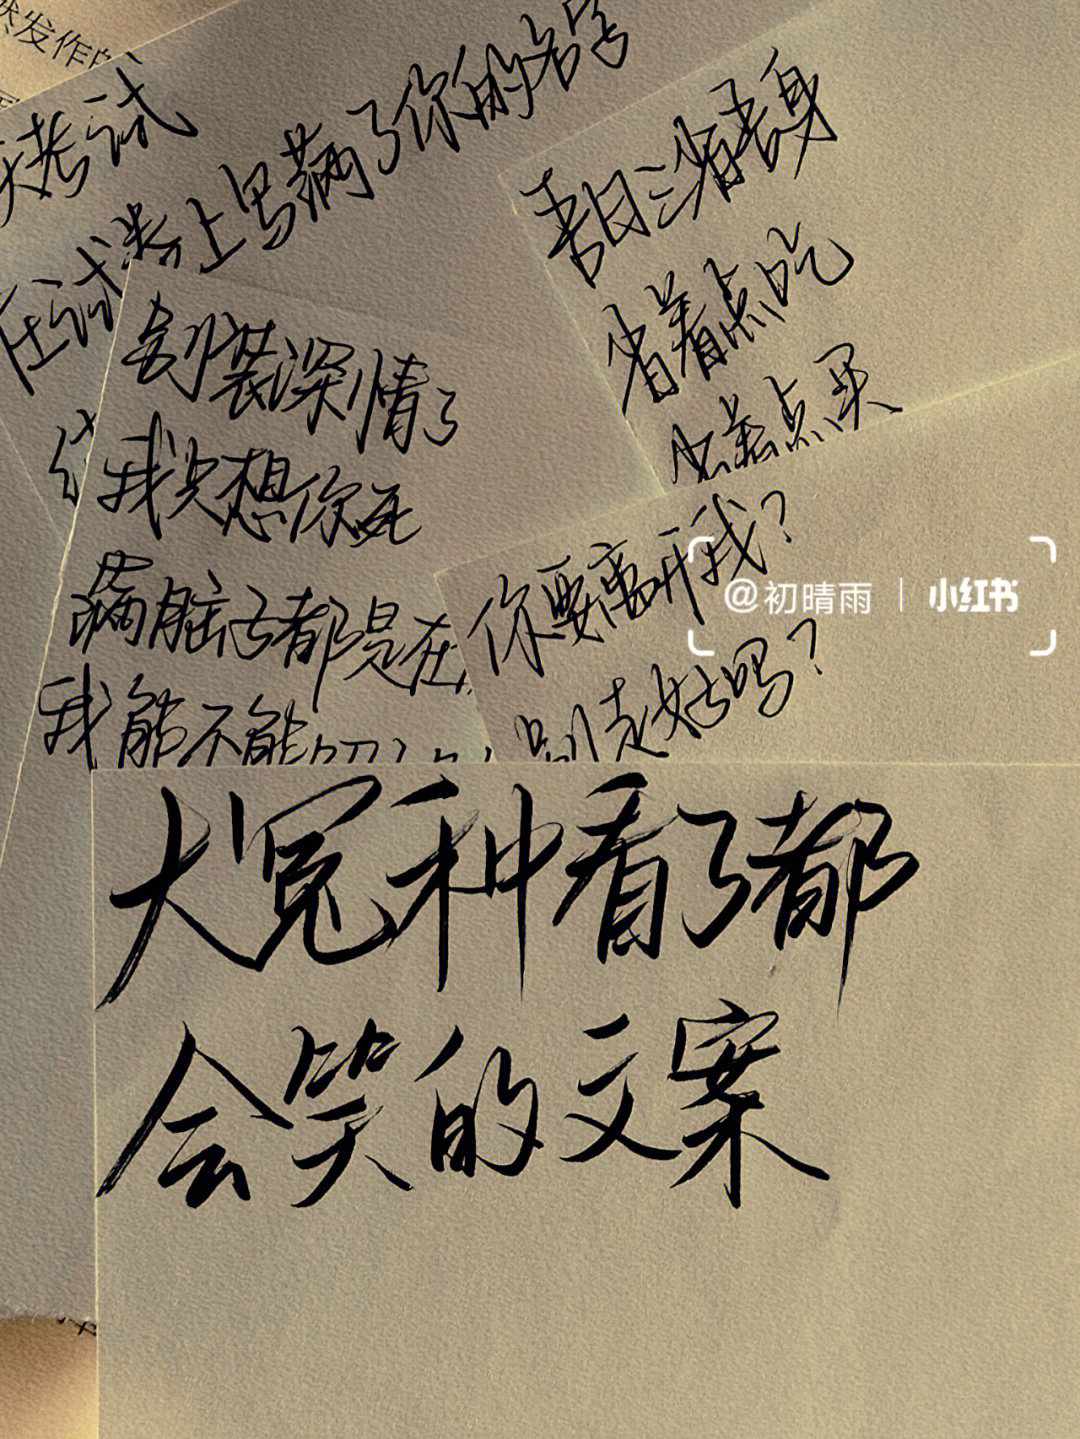 然发作
考试
在试卷上写满了你的名字
吾日三省吾身
省着点吃
省着点买
别装深情了
我只想你死
满脑子都是在
我能不能
你要离开我?
别走好吗?
@初晴雨 | 小红书
大冤种看了都
会笑的文案